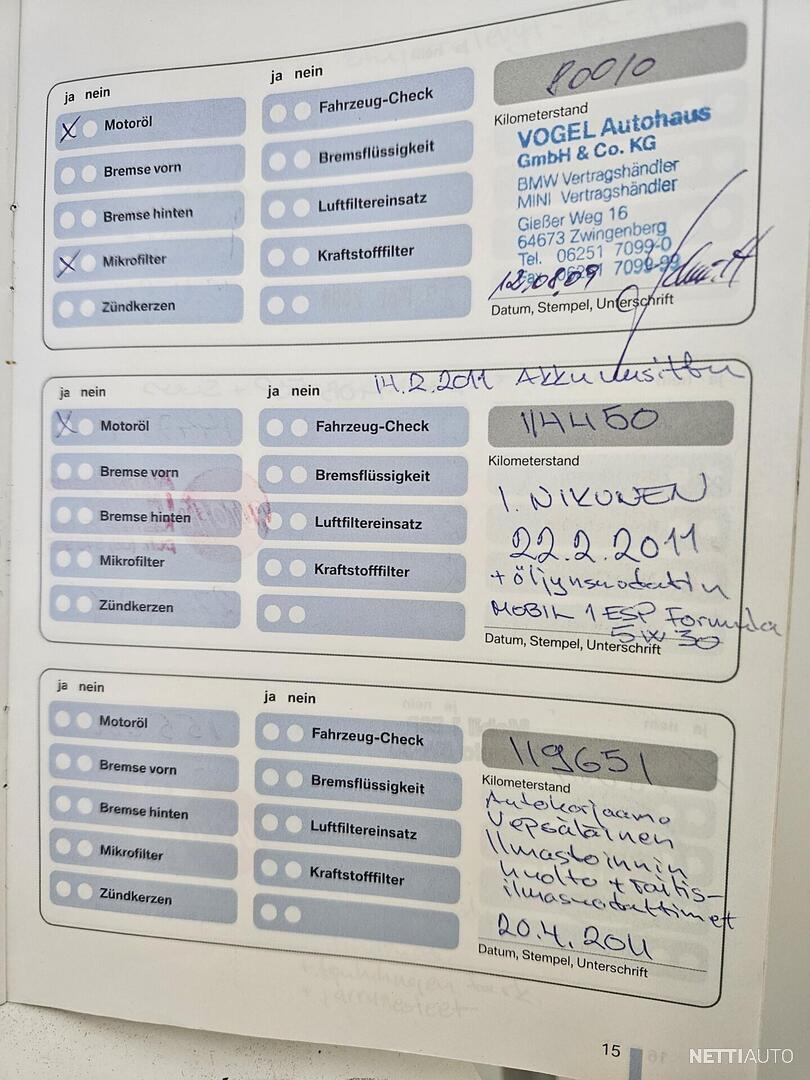 ja nein
Motoröl
Bremse vorn
Bremse hinten
Mikrofilter
Zündkerzen
ja nein
Fahrzeug-Check
Bremsflüssigkeit
Luftfiltereinsatz
Kraftstofffilter
80010
Kilometerstand
VOGEL Autohaus
GmbH & Co. KG
BMW Vertragshändler
MINI Vertragshändler
Gießer Weg 16
64673 Zwingenberg
Tel. 06251 7099-0
Fax 06251 7099-99
12.08.09
Datum, Stempel, Unterschrift
14.2.2011 Akku uusittu
ja nein
Motoröl
Bremse vorn
Bremse hinten
Mikrofilter
Zündkerzen
ja nein
Fahrzeug-Check
Bremsflüssigkeit
Luftfiltereinsatz
Kraftstofffilter
114450
Kilometerstand
I. NIKUNEN
22.2.2011
+ öljynsuodatin
MOBIL 1 ESP Formula
5W30
Datum, Stempel, Unterschrift
ja nein
Motoröl
Bremse vorn
Bremse hinten
Mikrofilter
Zündkerzen
ja nein
Fahrzeug-Check
Bremsflüssigkeit
Luftfiltereinsatz
Kraftstofffilter
119651
Kilometerstand
Autokorjaamo
Vepsäläinen
Ilmastoinnin
huolto + raitis-
ilmasuodattimet
20.4.2011
Datum, Stempel, Unterschrift
15
NETTIAUTO